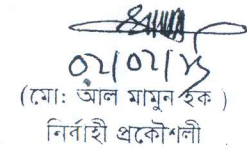 ০২/০২/১৬
(মো: আল মামুন হক )
নির্বাহী প্রকৌশলী